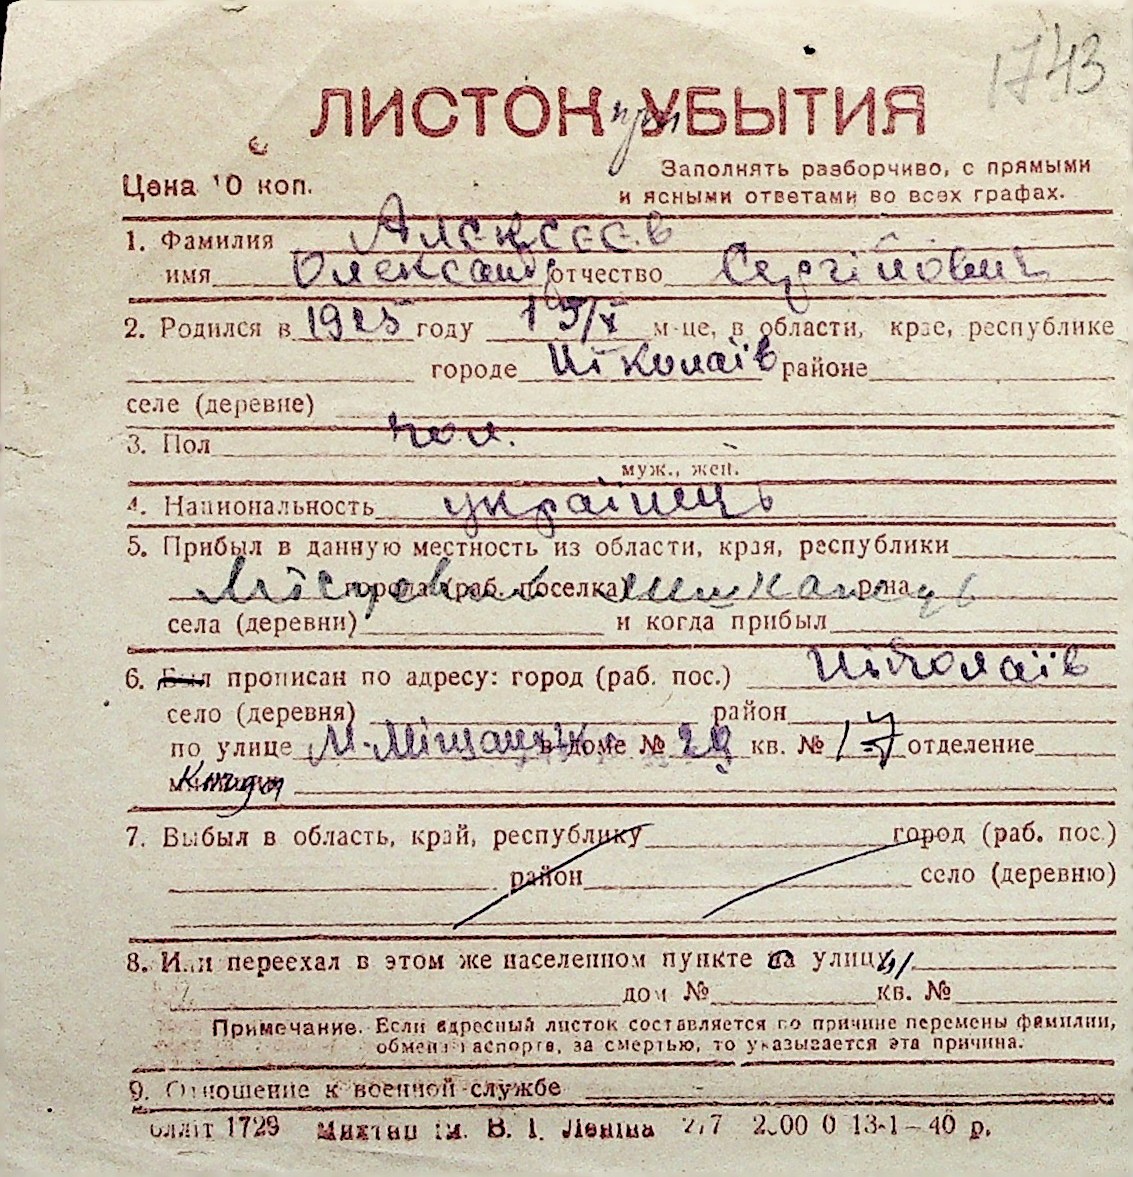 1743
ЛИСТОК при УБЫТИЯ
Цена 10 коп.
Заполнять разборчиво, с прямыми
и ясными ответами во всех графах.
1. Фамилия Алексеев
имя Олександр отчество Сергійович
2. Родился в 1925 году 15/X м-це, в области, крае, республике
городе Ніколаїв районе
селе (деревне)
3. Пол чол.
муж., жен.
4. Национальность українець
5. Прибыл в данную местность из области, края, республики
города (раб. поселка) р-на
Місцевий мешканець
села (деревни) и когда прибыл
6. Был прописан по адресу: город (раб. пос.) Ніколаїв
село (деревня) район
по улице М-Міщанська в доме № 29 кв. № 17 отделение
милиции
7. Выбыл в область, край, республику город (раб. пос.)
район село (деревню)
8. Или переехал в этом же населенном пункте на улицу
дом № кв. №
Примечание. Если адресный листок составляется по причине перемены фамилии,
обмена паспорта, за смертью, то указывается эта причина.
9. Отношение к военной службе
1729 ім. В. І. Леніна 2000 0 13-1-40 р.